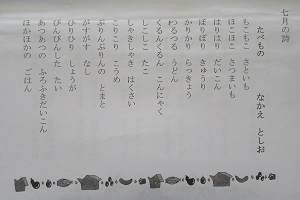 七月の詩
たべもの　なかえ　としお
もこもこ　さといも
ほこほこ　さつまいも
はりはり　だいこん
ぽりぽり　きゅうり
かりかり　らっきょう
つるつる　うどん
くるんくるん　こんにゃく
しこしこ　たこ
しゃきしゃき　はくさい
こりこり　こうめ
ぷりんぷりんの　とまと
がすがす　なし
ひりひり　しょうが
ぴんぴんした　たい
あつあつの　ふろふきだいこん
ほかほかの　ごはん